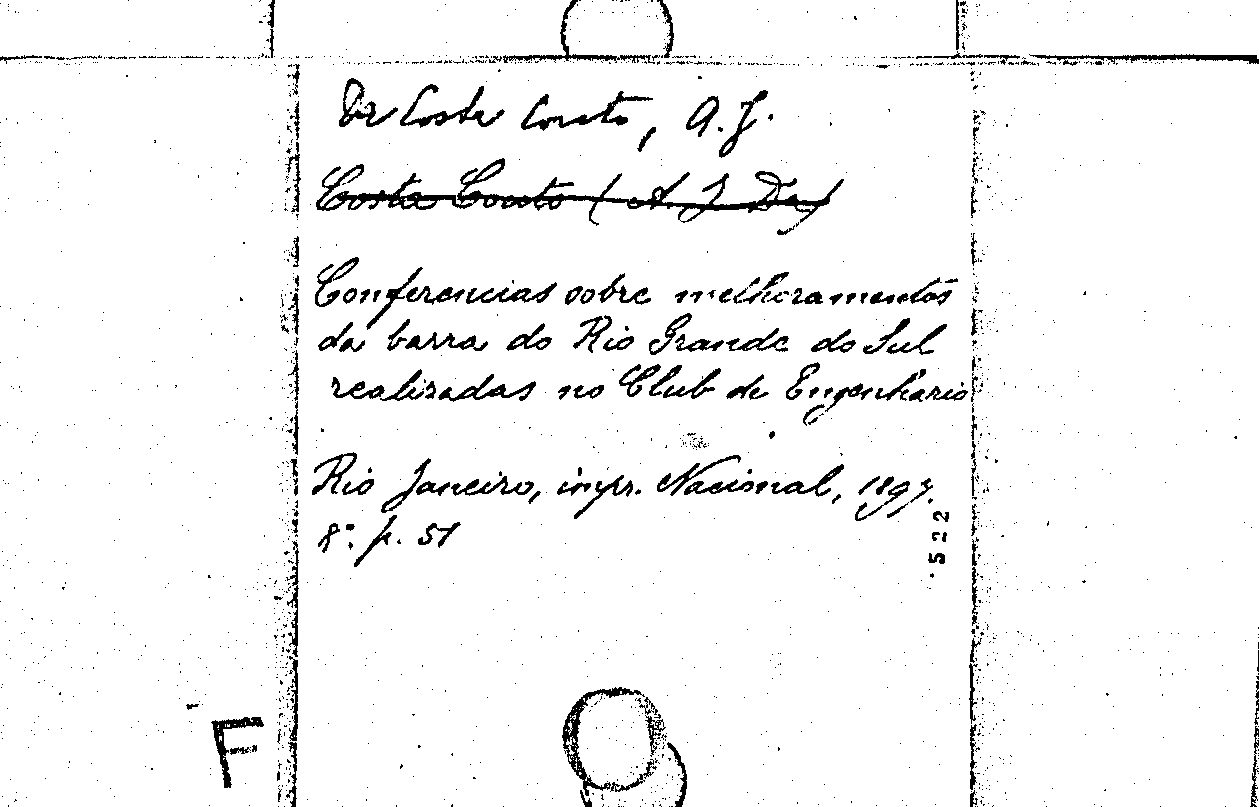 Da Costa Couto, A. J.
Costa Couto (A. J Da)
Conferencias sobre melhoramentos
da barra do Rio Grande do Sul
realizadas no Club de Engenharia
Rio Janeiro, impr. Nacional, 1897.
8º. p. 51
522
F